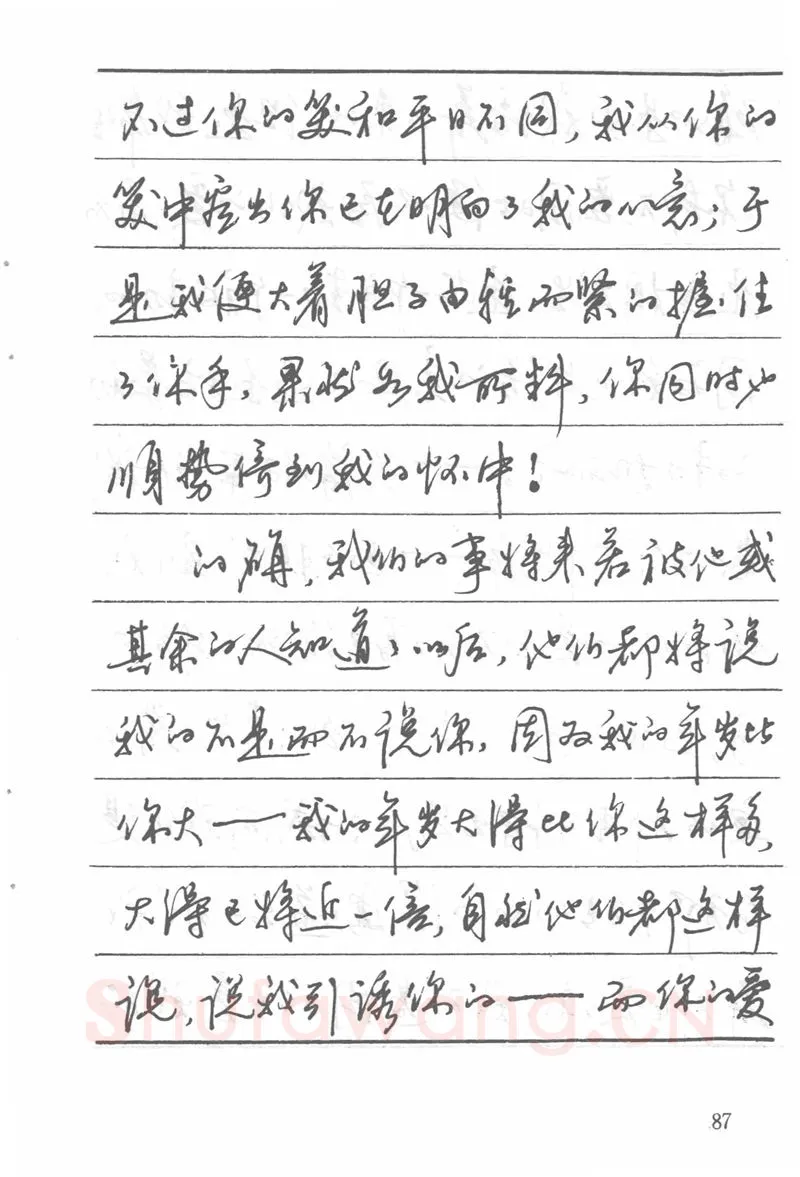 不过你的笑和平日不同，我从你的
笑中窥出你已在明白了我的心意；于
是我便大着胆子由轻而紧的握住
了你手，果然如我所料，你同时也
顺势倚到我的怀中！
的确，我们的事将来若被他或
其余的人知道了以后，他们都将说
我的不是而不说你，因为我的年岁比
你大——我的年岁大得比你这样多，
大得已将近一倍，自然他们都这样
说，说我引诱你的——而你的爱
Shufawang.CN
87